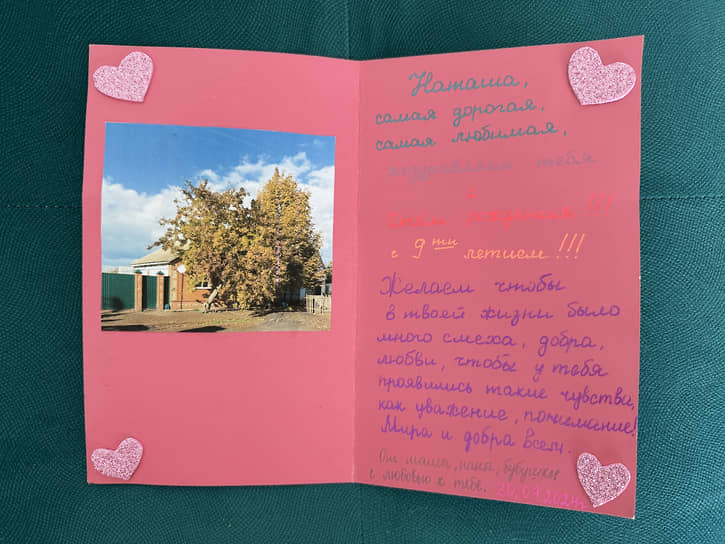 Наташа,
самая дорогая,
самая любимая,
поздравляем тебя
с
Днём рождения !!!
с 9ти летием !!!
Желаем чтобы
в твоей жизни было
много смеха, добра,
любви, чтобы у тебя
проявились такие чувства,
как уважение, понимание!
Мира и добра всем.
От мамы, папы,
с любовью к тебе.